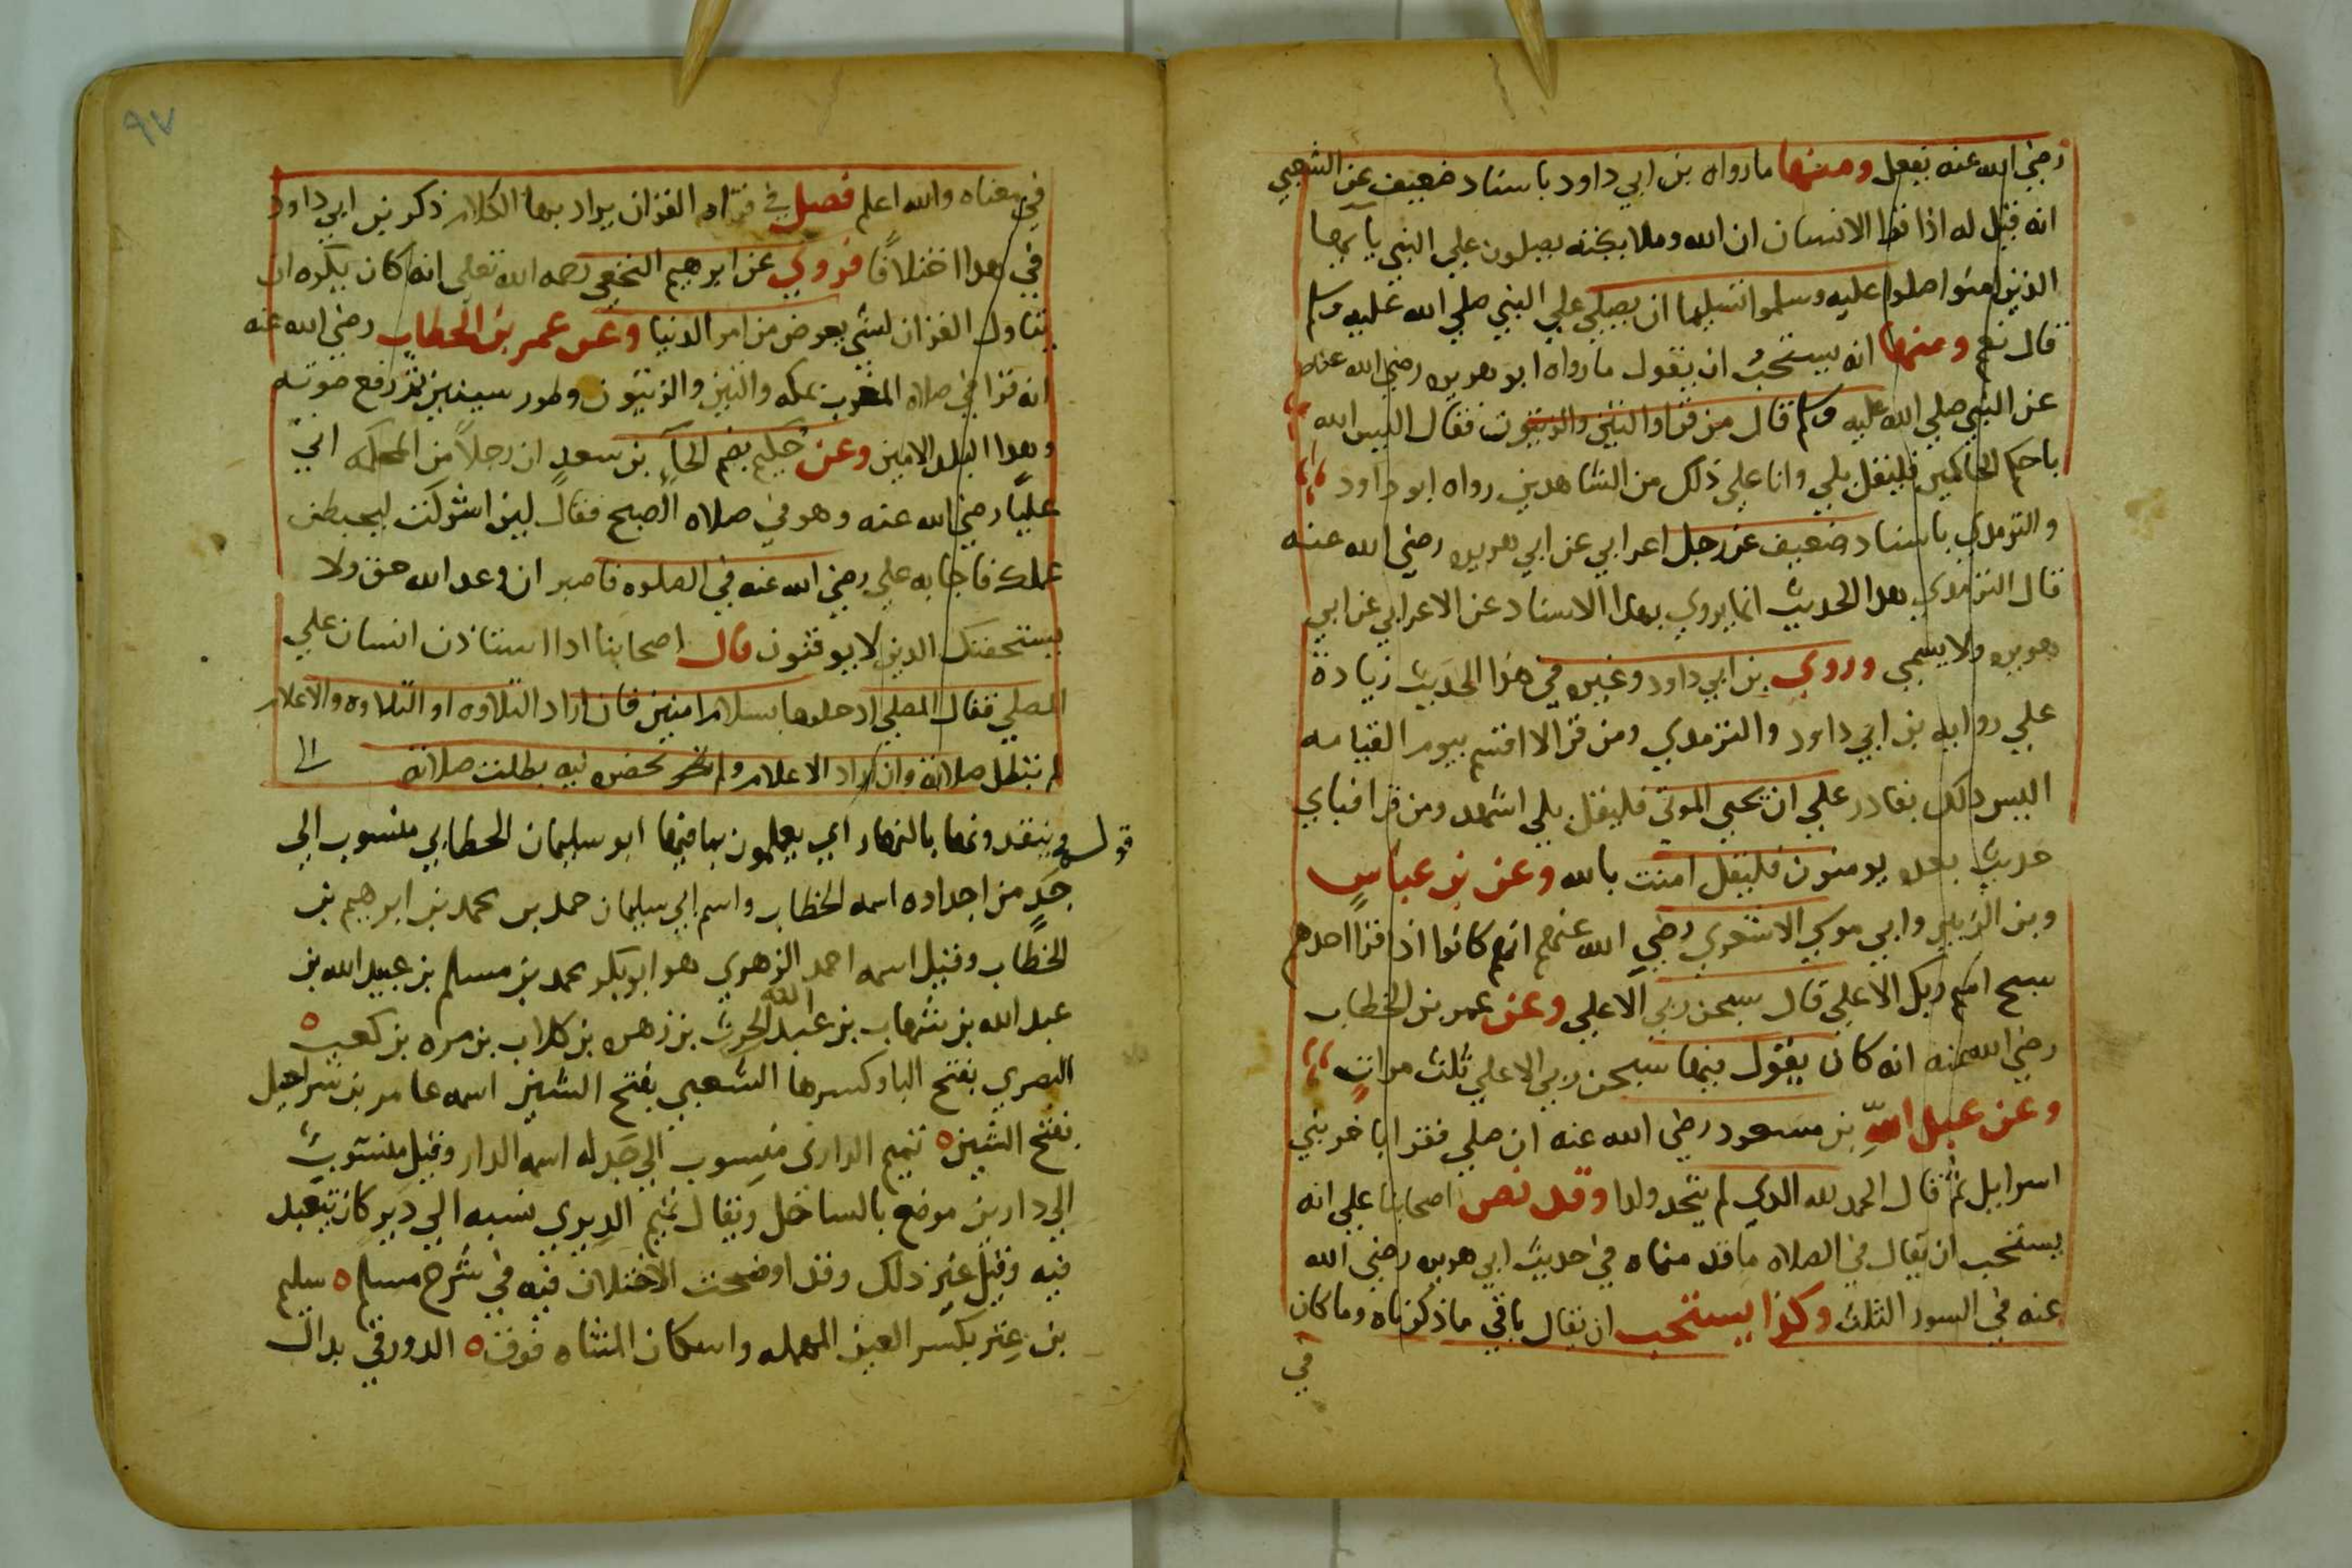 رضي الله عنه يفعل ومنها ما رواه بن ابي داود باسناد ضعيف عن الشعبي
انه قيل له اذا قرا الانسان ان الله وملايكته يصلون علي النبي يا يها
الذين امنوا صلوا عليه وسلموا تسليما ان يصلي علي النبي صلي الله عليه وسلم
قال نعم ومنها انه يستحب ان يقول ما رواه ابو هريره رضي الله عنه
عن النبي صلي الله عليه وسلم قال من قرا والتين والزيتون فقال اليس الله
باحكم الحاكمين فليقل بلي وانا علي ذلك من الشاهدين رواه ابو داود
والترمذي باسناد ضعيف عن رجل اعرابي عن ابي هريره رضي الله عنه
قال الترمذي هدا الحديث انما يروي بهذا الاسناد عن الاعرابي عن ابي
هريره ولا يسمي وروي بن ابي داود وغيره في هذا الحديث زيادة
علي روايه بن ابي داود والترمذي ومن قرا لا اقسم بيوم القيامه
اليس دلك بقادر علي ان يحيي الموتي فليقل بلي اشهد ومن قرا فباي
حديث بعده يومنون فليقل امنت بالله وعن بن عباس
وبن الزبير وابي موسي الاشعري رضي الله عنهم انهم كانوا اذا قرا احدهم
سبح اسم ربك الاعلي قال سبحن ربي الاعلي وعن عمر بن الخطاب
رضي الله عنه انه كان يقول فيها سبحن ربي الاعلي ثلث مرات
وعن عبد الله بن مسعود رضي الله عنه ان صلي فقرا باخر بني
اسراييل ثم قال الحمد لله الدي لم يتخد ولدا وقد نص اصحابنا علي انه
يستحب ان يقال في الصلاه ما قدمناه في حديث ابي هريره رضي الله
عنه في السور الثلث وكذا يستحب ان يقال باقي ما ذكرناه وما كان
في
٩٧
في معناه والله اعلم فصل في قراه القران يراد بها الكلام ذكر بن ابي داود
في هدا اختلافا فروي عن ابرهيم النخعي رحمه الله تعلي انه كان يكره ان
يتاول القران لشي يعرض من امر الدنيا وعن عمر بن الخطاب رضي الله عنه
انه قرا في صلاه المغرب بمكه والتين والزيتون وطور سينين ثم رفع صوته
وهدا البلد الامين وعن حكيم بضم الحآء بن سعد ان رجلا من المحكمه اتي
عليا رضي الله عنه وهو في صلاه الصبح فقال لين اشركت ليحبطن
عملك فاجابه علي رضي الله عنه في الصلوه فاصبر ان وعد الله حق ولا
يستخفنك الدين لا يوقنون قال اصحابنا ادا استاذن انسان علي
المصلي فقال المصلي ادخلوها بسلام امنين فان اراد التلاوه او التلاوه والاعلام
لم تبطل صلاته وان اراد الاعلام ولم تحضره نيه بطلت صلاته
قوله ويتفقدونها بالنهار اي يعملون بما فيها ابو سليمان الخطابي منسوب الي
جد من اجداده اسمه الخطاب واسم ابي سليمان حمد بن محمد بن ابرهيم بن
الخطاب وقيل اسمه احمد الزهري هو ابو بكر محمد بن مسلم بن عبيد الله بن
عبد الله بن شهاب بن عبد الله الحرث بن زهره بن كلاب بن مره بن كعب ٥
البصري بفتح البا وكسرها الشعبي بفتح الشين اسمه عامر بن شراحيل
بفتح الشين ٥ تميم الداري منسوب الي جد له اسمه الدار وقيل منسوب
الي دارين موضع بالساحل ويقال تميم الديري نسبه الي دير كان يتعبد
فيه وقيل غير دلك وقد اوضحت الاختلاف فيه في شرح مسلم ٥ سليم
بن عتر بكسر العين المهمله واسكان المثناه فوق ٥ الدورقي بدال